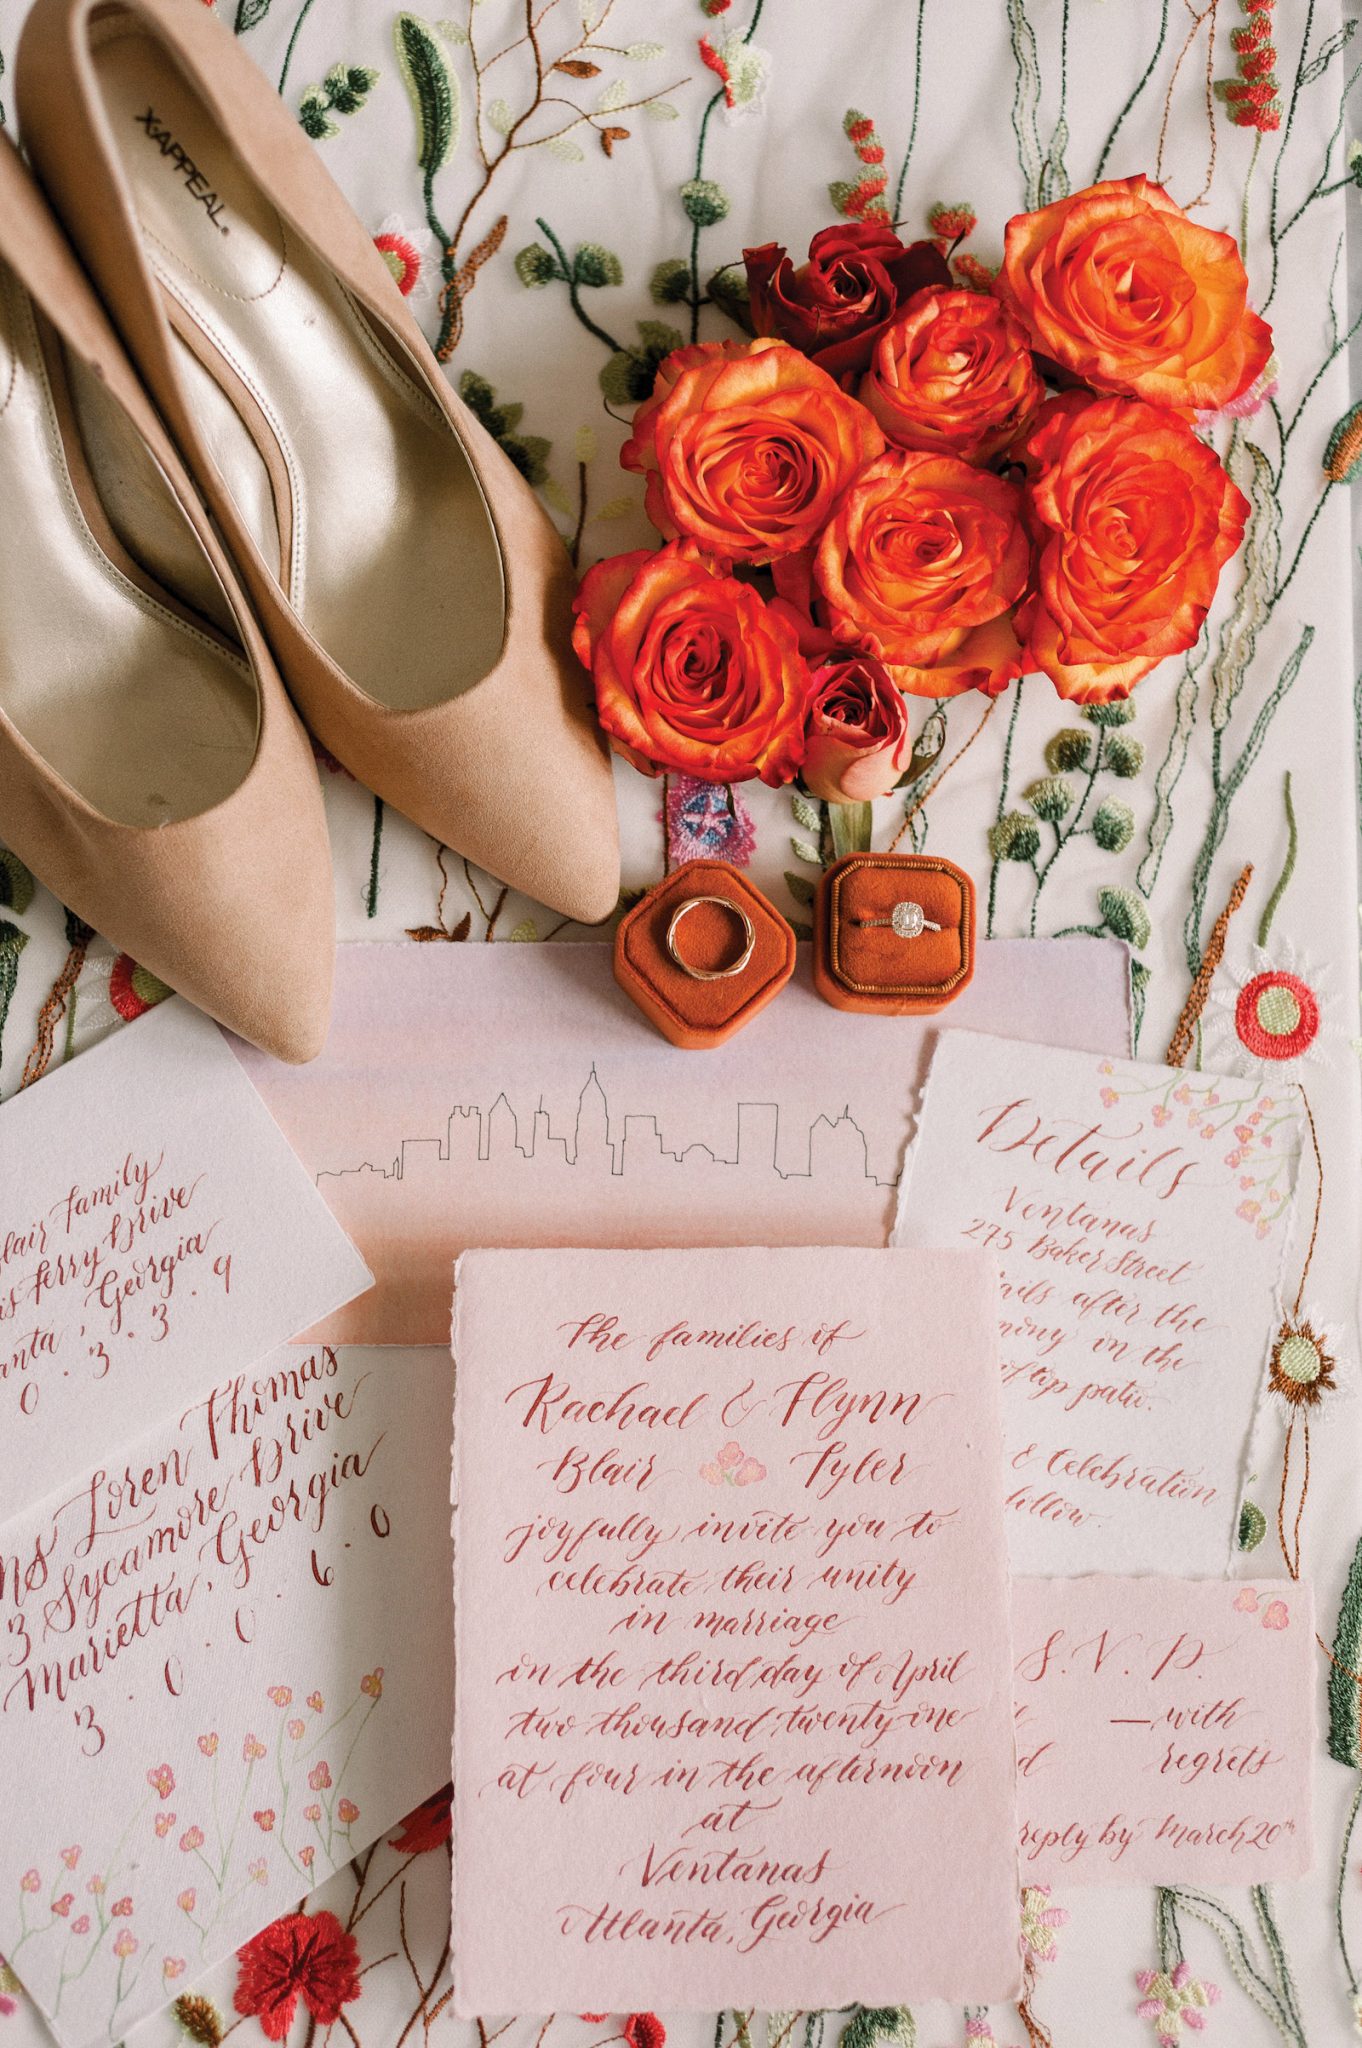 X·APPEAL®
Blair Family
Ferry Drive
, Georgia
0 · 3 · 3 · 9
Loren Thomas
3 Sycamore Drive
Marietta, Georgia
3 · 0 · 0 · 6 · 0
Details
Ventanas
275 Baker Street
after the
on the
patio.
& Celebration
follow.
The families of
Rachael & Flynn
Blair Tyler
joyfully invite you to
celebrate their unity
in marriage
in the third day of April
two thousand twenty one
at four in the afternoon
at
Ventanas
Atlanta, Georgia
S. V. P.
—with
regrets
reply by March 20th